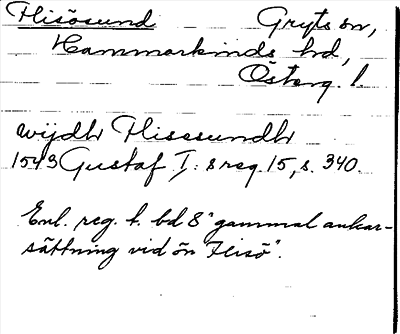 Flisösund Gryts sn,
Hammarkinds hd,
Österg. l.
wijdh Flisesundh
1543 Gustaf I: s reg. 15, s. 340.
Enl. reg. t. bd 8 "gammal ankar-
sättning vid ön Flisö".